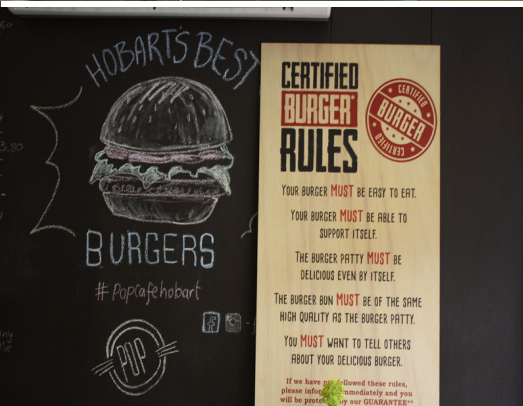 HOBART'S BEST
BURGERS
#Popcafehobart
POP
3,80
CERTIFIED
BURGER
RULES
CERTIFIED
BURGER
CERTIFIED
YOUR BURGER MUST BE EASY TO EAT.
YOUR BURGER MUST BE ABLE TO
SUPPORT ITSELF.
THE BURGER PATTY MUST BE
DELICIOUS EVEN BY ITSELF.
THE BURGER BUN MUST BE OF THE SAME
HIGH QUALITY AS THE BURGER PATTY.
YOU MUST WANT TO TELL OTHERS
ABOUT YOUR DELICIOUS BURGER.
If we have followed these rules,
please immediately and you
will be our GUARANTEE**